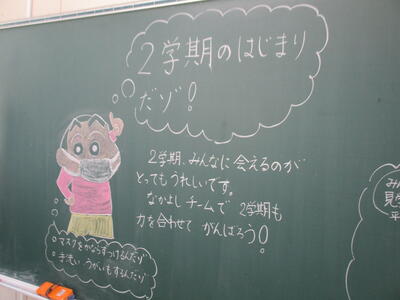 2学期のはじまり
だゾ!
2学期、みんなに会えるのが
とってもうれしいです。
なかよしチームで 2学期も
力を合わせて がんばろう!
◎マスクをかならずつけるんだゾ
◎手洗い うがいもするんだゾ
みん
見学
平